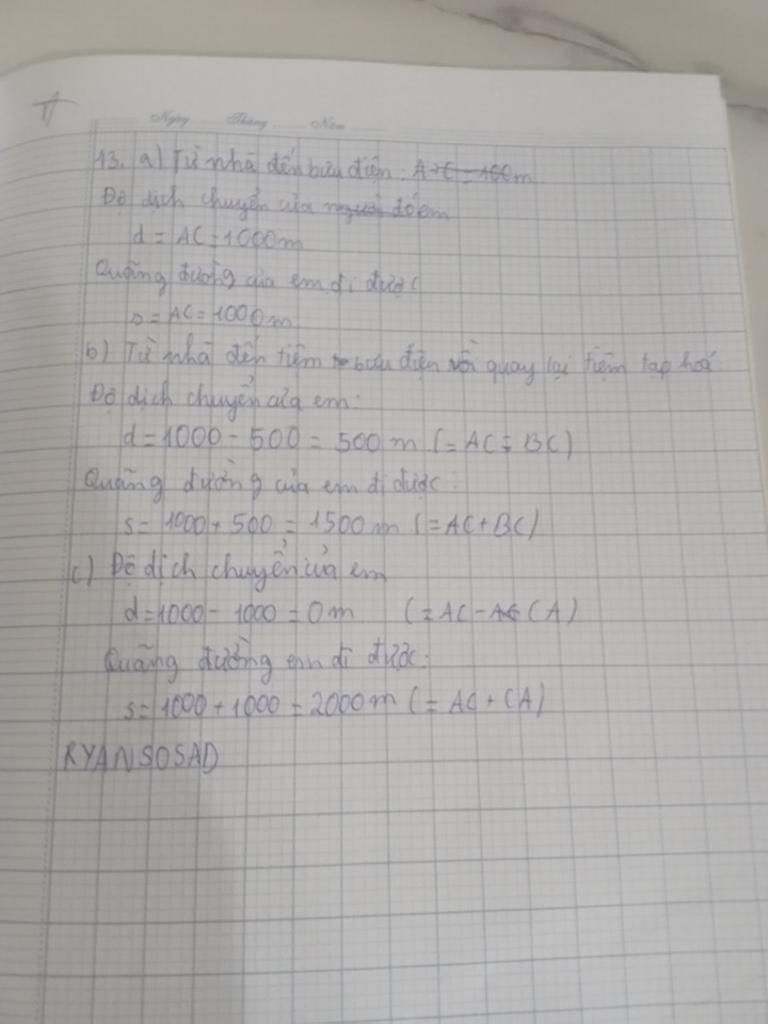 Ngày Tháng Năm
13. a) Từ nhà đến bưu điện: A→C = 100m
Độ dịch chuyển của người đó em
d = AC = 1000m
Quãng đường của em đi được
s = AC = 1000m
b) Từ nhà đến tiệm bưu điện rồi quay lại tiệm tạp hoá
Độ dịch chuyển của em:
d = 1000 - 500 = 500 m (= AC - BC)
Quãng đường của em đi được:
s = 1000 + 500 = 1500 m (= AC + BC)
c) Độ dịch chuyển của em
d = 1000 - 1000 = 0 m (= AC - AC CA)
Quãng đường em đi được:
s = 1000 + 1000 = 2000 m (= AC + CA)
RYANSOSAD